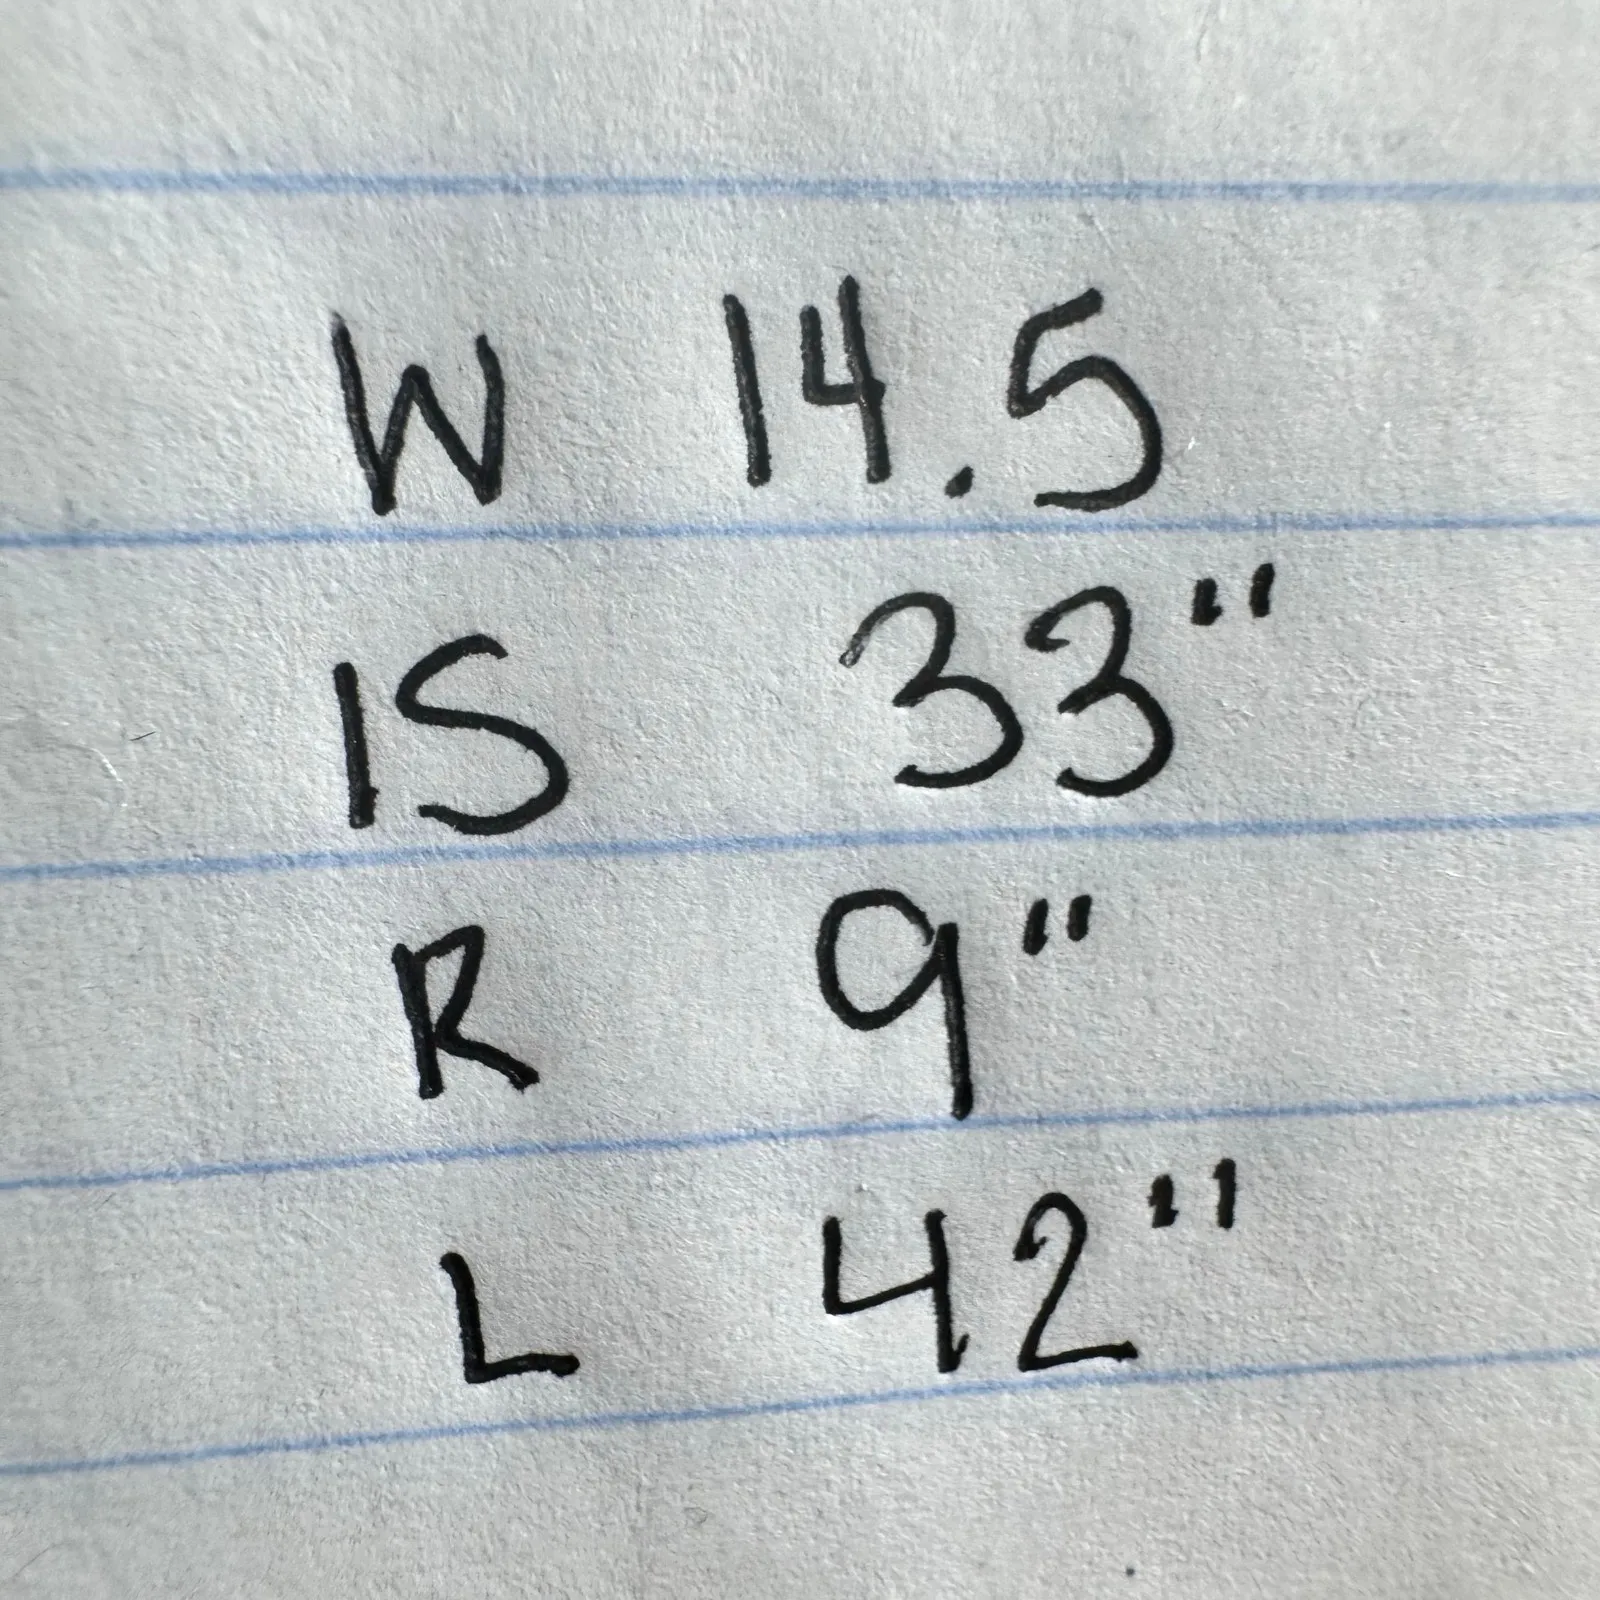 W 14.5
IS 33"
R 9"
L 42"